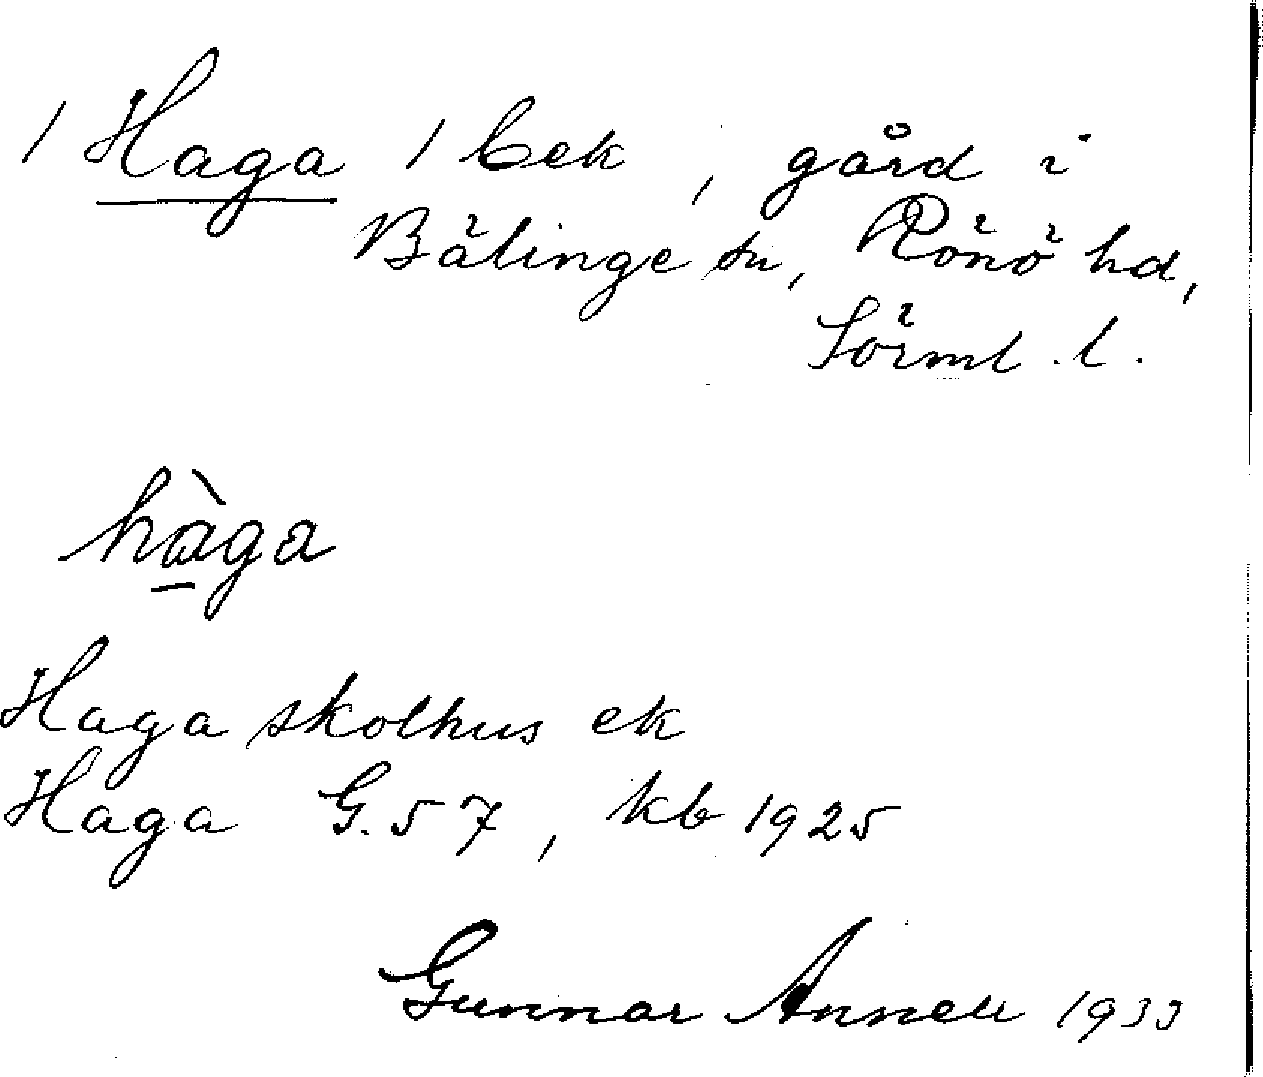 / Haga / bek, gård i
Bälinge sn, Rönö hd,
Sörml. l.
hàga
Haga skolhus ek
Haga G. 57, kb 1925
Gunnar Annell 1933